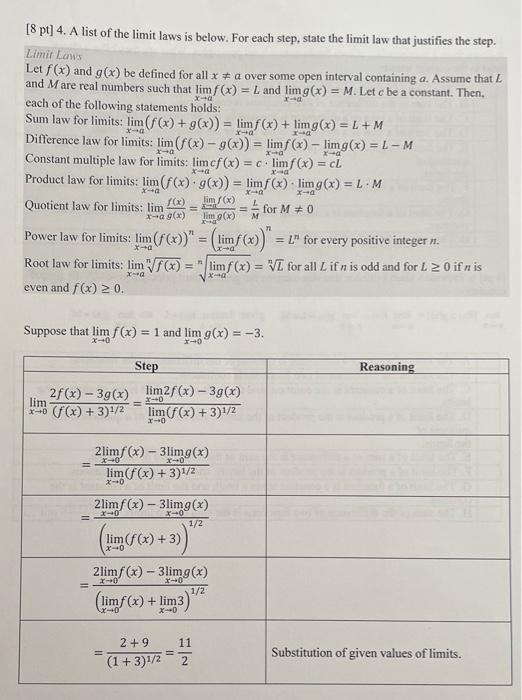 [8 pt] 4. A list of the limit laws is below. For each step, state the limit law that justifies the step.
Limit Laws
Let f(x) and g(x) be defined for all x ≠ a over some open interval containing a. Assume that L
and M are real numbers such that lim_{x→a} f(x) = L and lim_{x→a} g(x) = M. Let c be a constant. Then,
each of the following statements holds:
Sum law for limits: lim_{x→a} (f(x) + g(x)) = lim_{x→a} f(x) + lim_{x→a} g(x) = L + M
Difference law for limits: lim_{x→a} (f(x) − g(x)) = lim_{x→a} f(x) − lim_{x→a} g(x) = L − M
Constant multiple law for limits: lim_{x→a} cf(x) = c · lim_{x→a} f(x) = cL
Product law for limits: lim_{x→a} (f(x) · g(x)) = lim_{x→a} f(x) · lim_{x→a} g(x) = L · M
Quotient law for limits: lim_{x→a} f(x)/g(x) = lim_{x→a} f(x) / lim_{x→a} g(x) = L/M for M ≠ 0
Power law for limits: lim_{x→a} (f(x))^n = (lim_{x→a} f(x))^n = L^n for every positive integer n.
Root law for limits: lim_{x→a} ⁿ√f(x) = ⁿ√(lim_{x→a} f(x)) = ⁿ√L for all L if n is odd and for L ≥ 0 if n is
even and f(x) ≥ 0.
Suppose that lim_{x→0} f(x) = 1 and lim_{x→0} g(x) = −3.
Step Reasoning
lim_{x→0} (2f(x) − 3g(x)) / (f(x) + 3)^{1/2} = lim_{x→0} 2f(x) − 3g(x) / lim_{x→0} (f(x) + 3)^{1/2}
= (2 lim_{x→0} f(x) − 3 lim_{x→0} g(x)) / lim_{x→0} (f(x) + 3)^{1/2}
= (2 lim_{x→0} f(x) − 3 lim_{x→0} g(x)) / (lim_{x→0} (f(x) + 3))^{1/2}
= (2 lim_{x→0} f(x) − 3 lim_{x→0} g(x)) / (lim_{x→0} f(x) + lim_{x→0} 3)^{1/2}
= (2 + 9) / (1 + 3)^{1/2} = 11/2 Substitution of given values of limits.